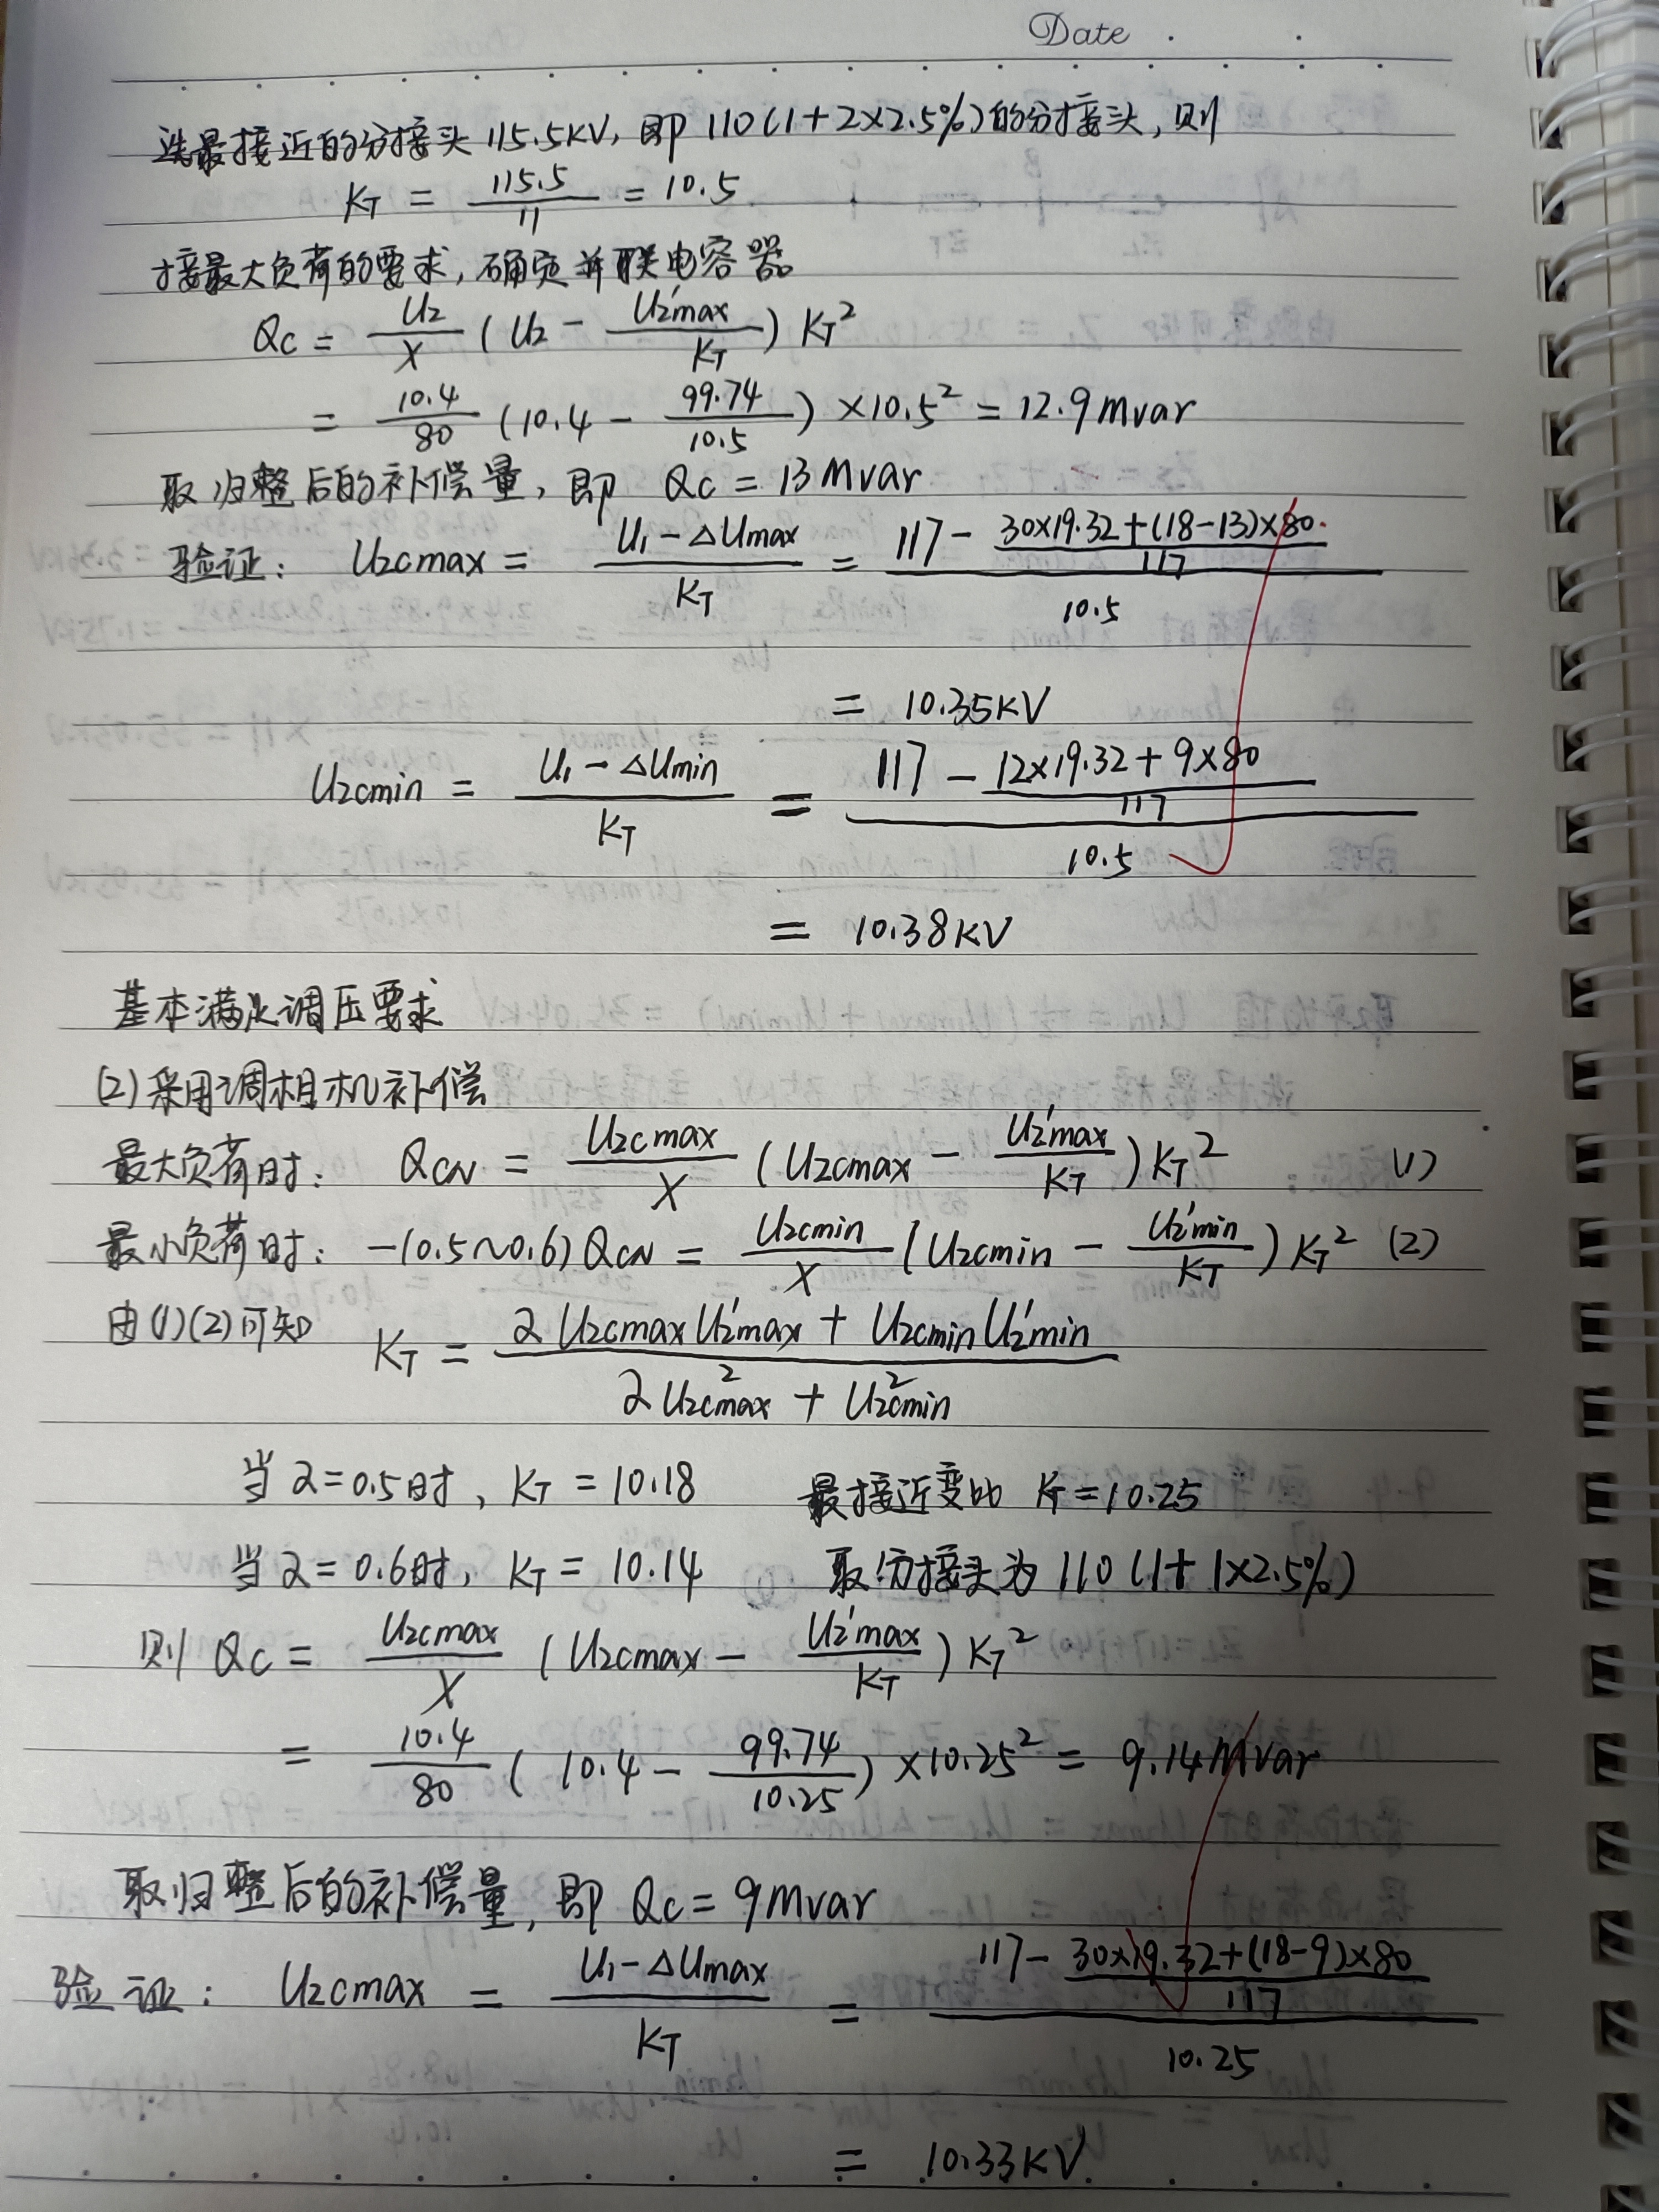 Date
选最接近的分接头115.5KV,即110(1+2×2.5%)的分接头,则
KT = 115.5/11 = 10.5
按最大负荷的要求,确定并联电容器
Qc = U2/X (U2 - U2'max/KT) KT²
= 10.4/80 (10.4 - 99.74/10.5) ×10.5² = 12.9 Mvar
取归整后的补偿量,即 Qc = 13 Mvar
验证: U2cmax = (U1-ΔUmax)/KT = (117 - (30×19.32+(18-13)×80)/117)/10.5
= 10.35KV
U2cmin = (U1-ΔUmin)/KT = (117 - (12×19.32+9×80)/117)/10.5
= 10.38KV
基本满足调压要求
(2)采用调相机补偿
最大负荷时: QCN = U2cmax/X (U2cmax - U2'max/KT) KT² (1)
最小负荷时: -(0.5~0.6)QCN = U2cmin/X (U2cmin - U2'min/KT) KT² (2)
由(1)(2)可知 KT = (αU2cmaxU2'max + U2cminU2'min)/(αU2cmax² + U2cmin²)
当α=0.5时, KT = 10.18 最接近变比 KT = 10.25
当α=0.6时, KT = 10.14 取分接头为110(1+1×2.5%)
则 Qc = U2cmax/X (U2cmax - U2'max/KT) KT²
= 10.4/80 (10.4 - 99.74/10.25) ×10.25² = 9.14Mvar
取归整后的补偿量,即 Qc = 9Mvar
验证: U2cmax = (U1-ΔUmax)/KT = (117 - (30×19.32+(18-9)×80)/117)/10.25
= 10.33KV